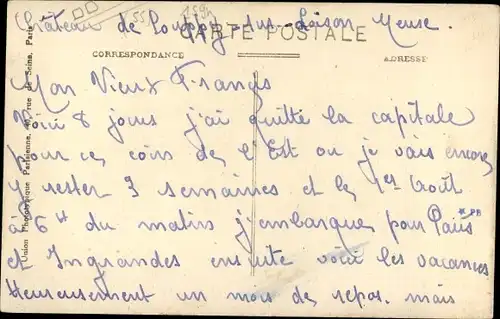 Château de Louppy-sur-Loison Meuse.
CARTE POSTALE
CORRESPONDANCE
ADRESSE
Mon Vieux Francis
Voici 8 jours j'ai quitté la capitale
pour ces coins de l'Est ou je vais encore
y rester 3 semaines et le 1er Août
à 6H du matin j'embarque pour Paris
et Ingrandes ensuite voici les vacances
Heureusement un mois de repos. mais
Union Phototypique Parisienne, rue de Seine, Paris